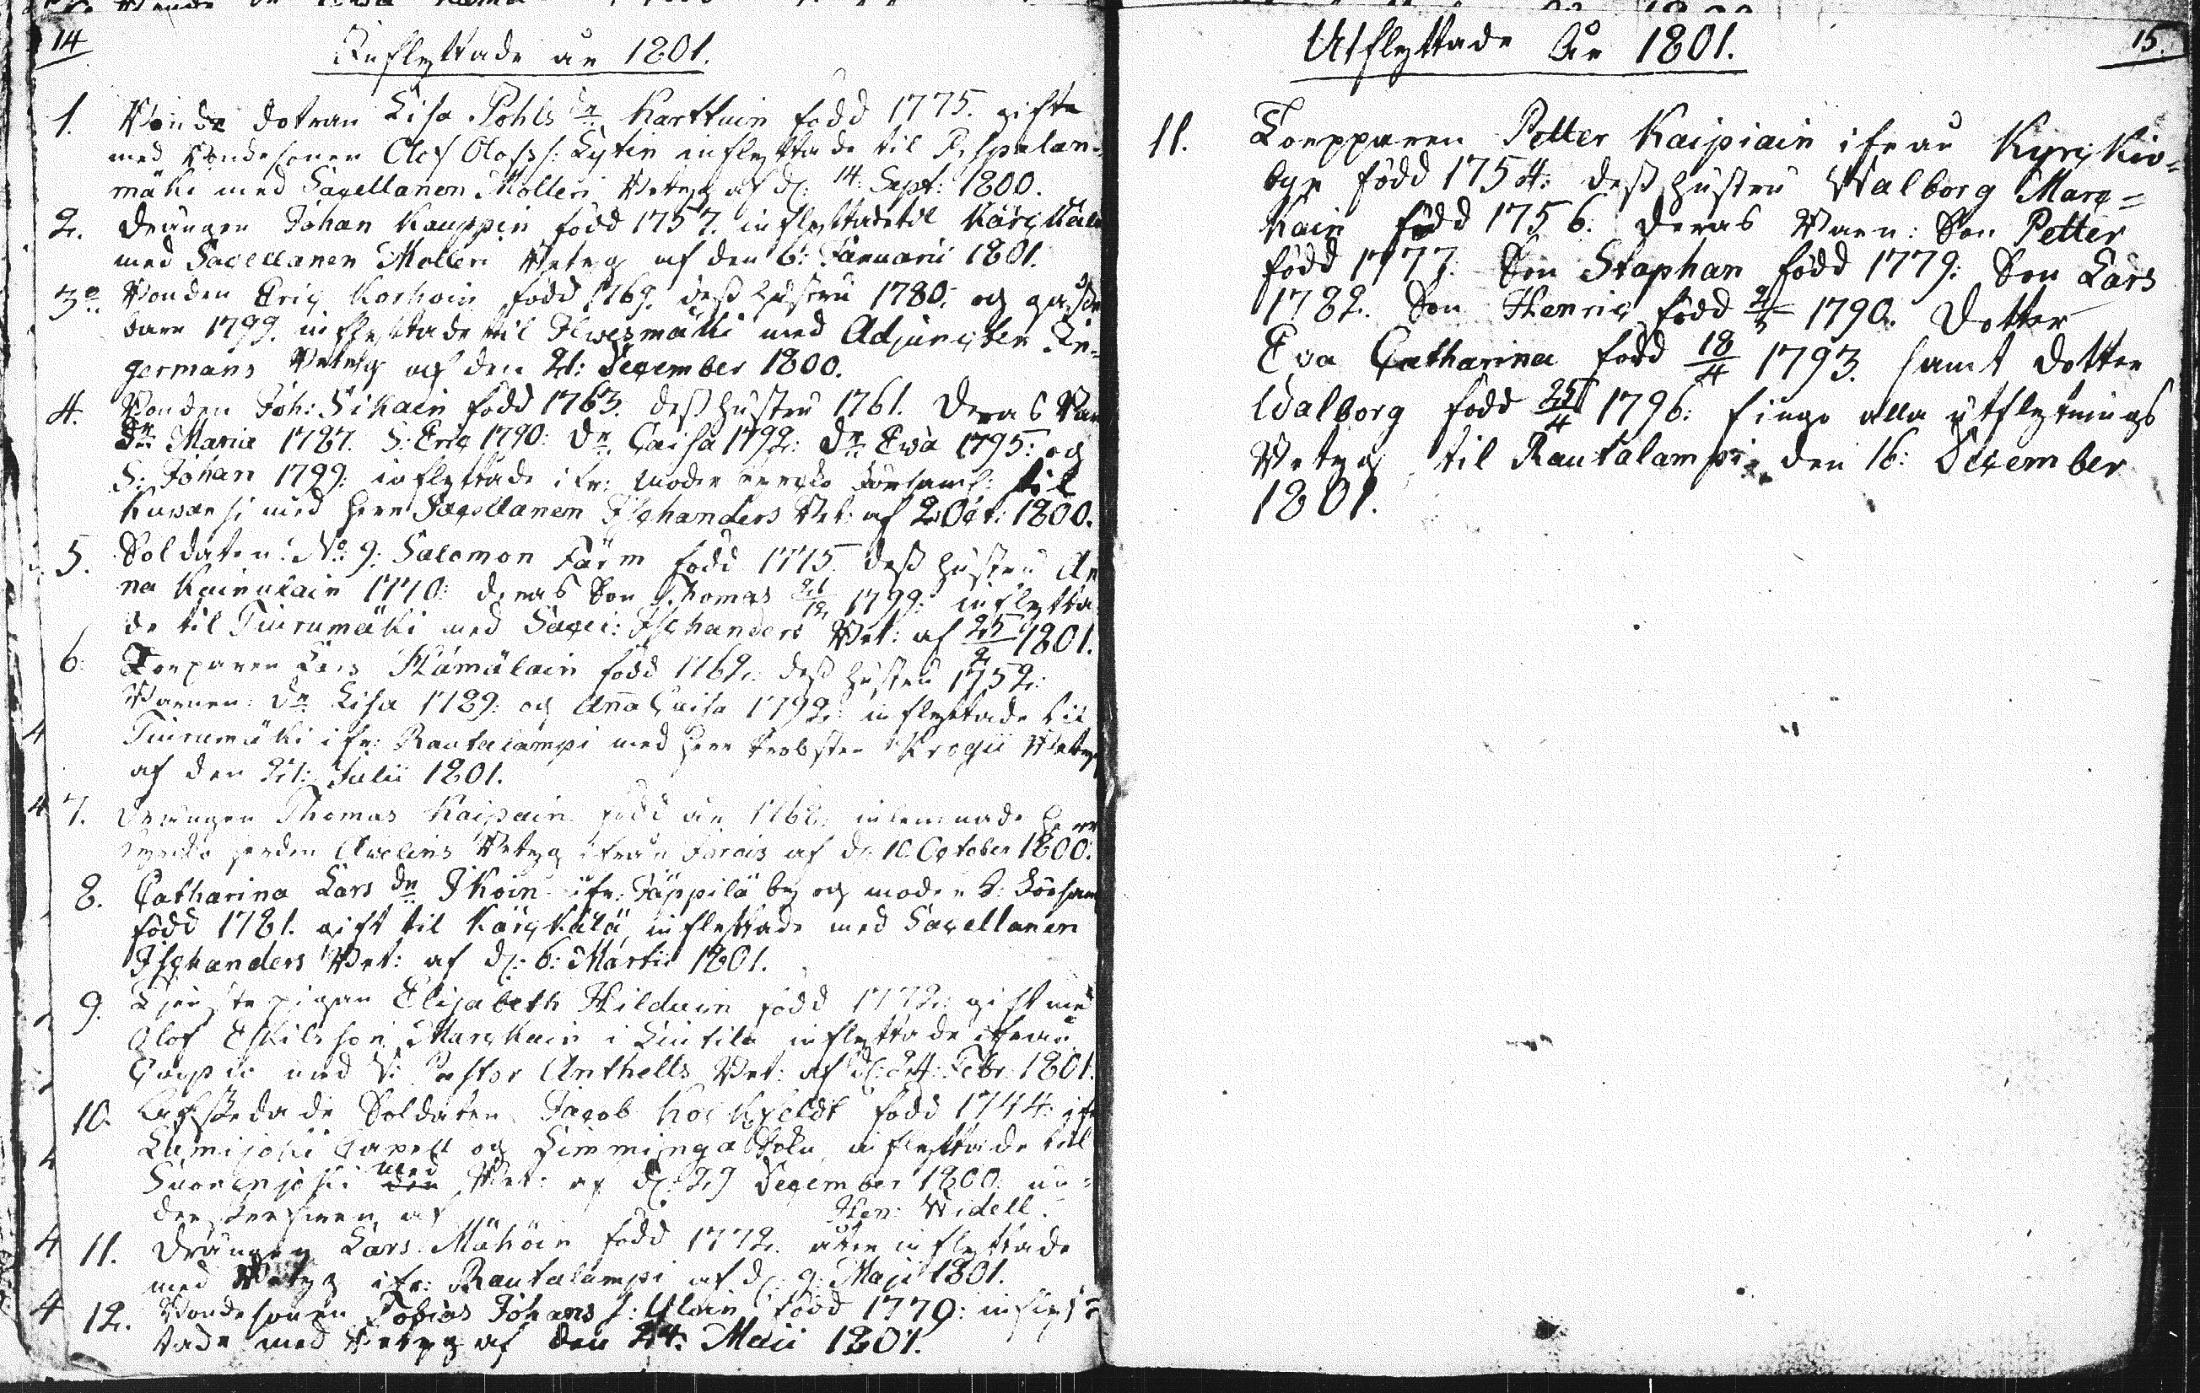 14
Inflyttade år 1801.
1. Bonde dotran Lisa Pohls dr Karttuin född 1775. gifte
med Bondesonen Olof Olofss: Lytin inflyttade til
mäki med Sacellanen Molleri Betyg af d: 14: Sept: 1800.
2. Drängen Johan Kauppin född 1757. inflyttade til Kärckälä
med Sacellanen Molleri Betyg af den 6: Januarii 1801.
3. Bonden Eric Korhoin född 1769. dess hustru 1780. og
barn 1799. inflyttade til Ilwesmäki med Adjuncten In=
germans Betyg af den 21: December 1800.
4. Bonden Joh: Sikain född 1763. dess hustru 1761. Deras Bar
Dr Maria 1787. S: Eric 1790: Dr Caisa 1792: Dr Eva 1795: og
S: Johan 1799: inflyttade ifr: moder Församl: til
med herr Sacellanen Ischanders Bet: af 2 Oct: 1800.
5. Soldaten No 9: Salomon Färm född 1775. dess hustru An
na Kainulain 1770: deras Son Thomas 21/12 1799: inflytta
de til Tiurumäki med Sacel: Ischanders Bet: af 25/2 1801.
6. Torparen Lars Hämälain född 1762: dess hustru 1752:
Barnen: Dr Lisa 1789: og Anna Caisa 1792: inflyttade til
4 Tiurumäki ifr: Rautalampi med herr Probsten Krogii Betyg
af den 27: Julii 1801.
4 7. Drängen Thomas Kaipain född år 1762: inlemnade herr
Kyrkoherden Awelins Betyg ifrån Jorois af d: 10 October 1800:
8. Catharina Lars dr Ikoin ifr: Jäppilä by og moder F: Församl
född 1781. gift til Kärckälä, inflyttade med Sacellanen
Ischanders Bet: af d: 6: Martii 1801.
9. Tjenste pigan Elisabeth Hilduin född 1772: gift med
Olof Eskilsson Marckain i Lintila inflyttade ifrån
Cuopio med V: Pastor Anthells Bet: af d: 24: Febr: 1801.
10. Afskedade Soldaten Jacob född 1744: ifr
Lumijoki Capell og Limminga Sokn, inflyttade til
4 Suonenjoki med Bet: af d: 29 December 1800. un=
derskrifven af Hen: Widell.
4 11. Drängen Lars Mähöin född 1772. åter inflyttade
med Betyg ifr: Rautalampi af d: 9: Maji 1801.
4 12. Bondesonen Tobias Johans s: Ylöin född 1779: inflyt=
tade med Betyg af den 24: Maii 1801.
15.
Utflyttade År 1801.
11. Torpparen Petter Kaipiain ifrån Kyrckio=
bye född 1754: dess hustru Walborg Marc=
kain född 1756: deras Barn: Son Petter
född 1777: Son Staphan född 1779: Son Lars
1782. Son Henric född 2/5 1790. Dotter
Eva Catharina född 18/4 1793. samt dotter
Walborg född 25/4 1796: fingo alla utflytnings
Betyg til Rautalampi, den 16: December
1801.